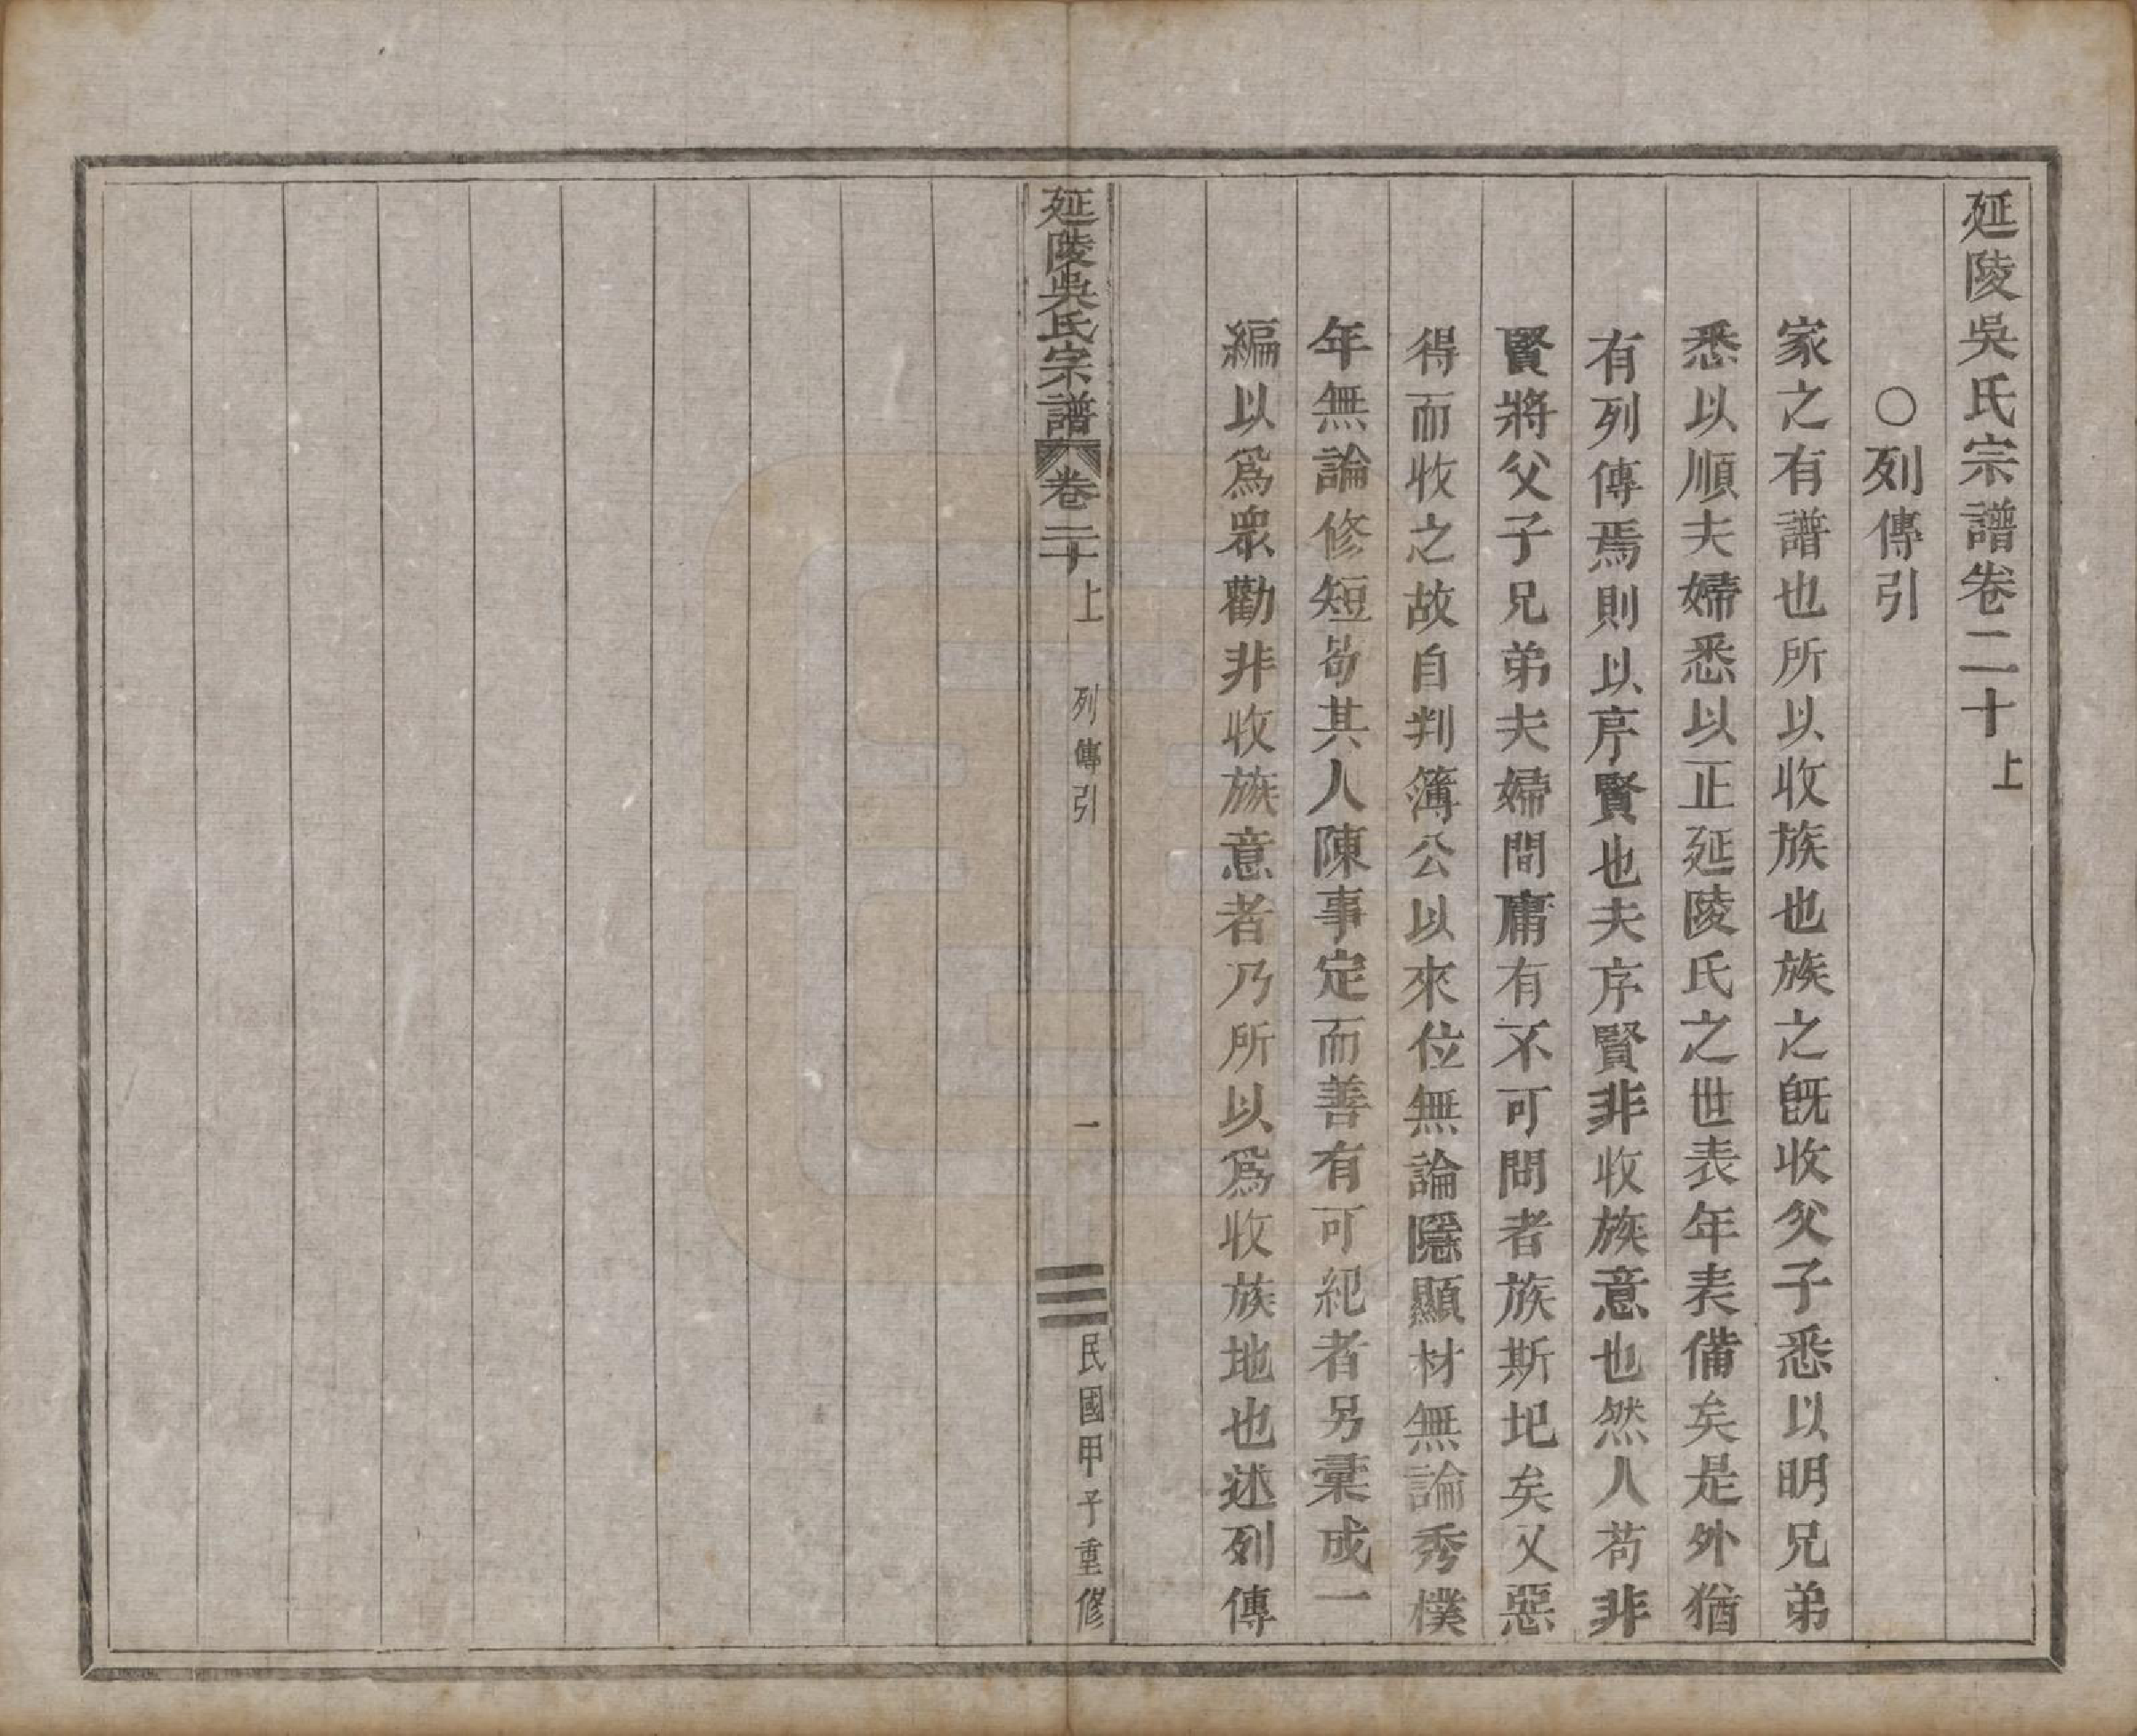 延陵吳氏宗譜卷二十上
○列傳引
家之有譜也所以收族也族之旣收父子悉以明兄弟
悉以順夫婦悉以正延陵氏之世表年表備矣是外猶
有列傳焉則以序賢也夫序賢非收族意也然人苟非
賢將父子兄弟夫婦間庸有不可問者族斯圯矣又惡
得而收之故自判簿公以來位無論隱顯材無論秀樸
年無論修短苟其人陳事定而善有可紀者另彚成一
編以爲眾勸非收族意者乃所以爲收族地也述列傳
延陵吳氏宗譜 卷二十上 列傳引 一 民國甲子重修